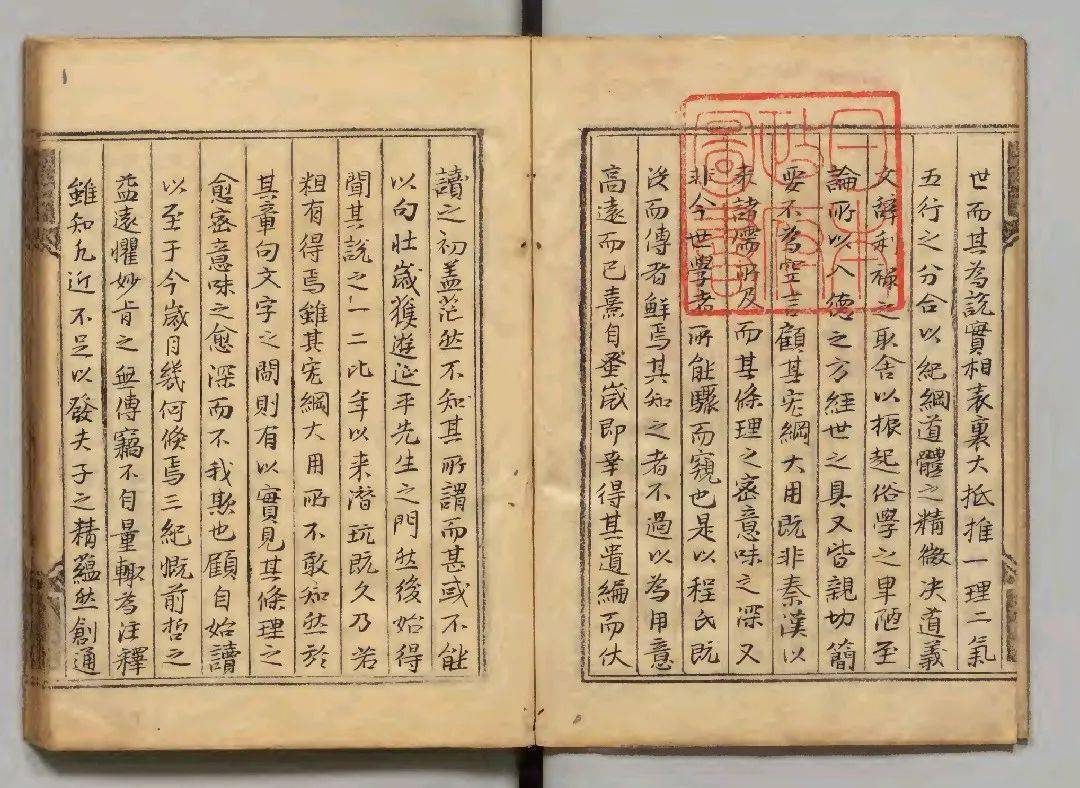 世而其為説實相表裏大抵推一理二氣
五行之分合以紀綱道體之精微决道義
文辭利祿之取舍以振起俗學之卑陋至
論所以入德之方經世之具又皆親切簡
要不為空言顧其宏綱大用既非秦漢以
来諸儒所及而其條理之密意味之深又
非今世學者所能驟而窺也是以程氏既
沒而傳者鮮焉其知之者不過以為用意
高遠而已熹自蚤歲即幸得其遺編而伏
讀之初盖茫然不知其所謂而甚或不能
以句壮歲獲遊延平先生之門然後始得
聞其說之一二比年以来潛玩既久乃若
粗有得焉雖其宏綱大用所不敢知然於
其章句文字之間則有以實見其條理之
愈密意味之愈深而不我欺也顧自始讀
以至于今歲月幾何倐焉三紀慨前哲之
益遠懼妙旨之無傳竊不自量輙為注釋
雖知凡近不足以發夫子之精蘊然創通
日本
政府
圖書